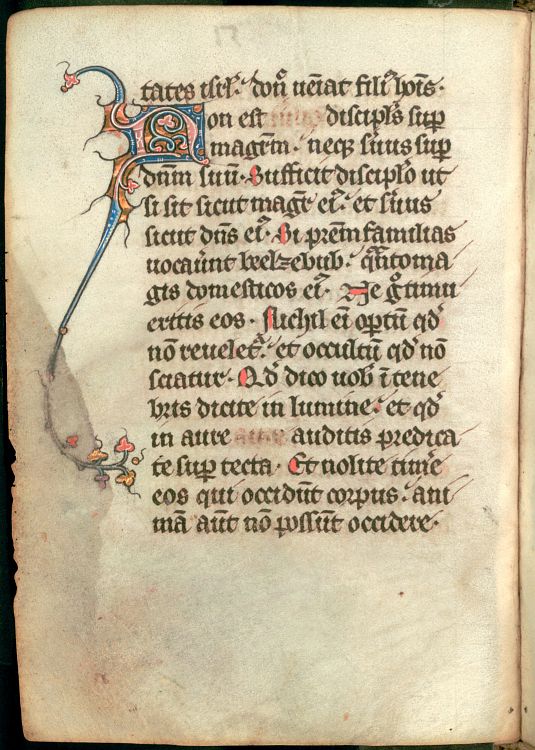 tates isrł. don̄ ueniat fili' hōis.
Non est discipl's sup
magr̄m. neq; s̄uus sup
dn̄m suū. Sufficit discipl'o ut
si sit sicut magr̄ ei'. et s̄uus
sicut dn̄s ei'. Si pr̄emfamilias
uocauer̄nt beelzebub. q̄nto ma
gis domesticos ei'. Ne g̊ timu
eritis eos. Nichil eī optū qd̄
nō reuelet'. et occultū qd̄ nō
sciatur. Qd̄ dico uob' ī tene
bris dicite in lumine. et qd̄
in aure auditis predica
te sup tecta. Et nolite tim̄e
eos qui occidūt corpus. ani
mā aūt nō possūt occidere.